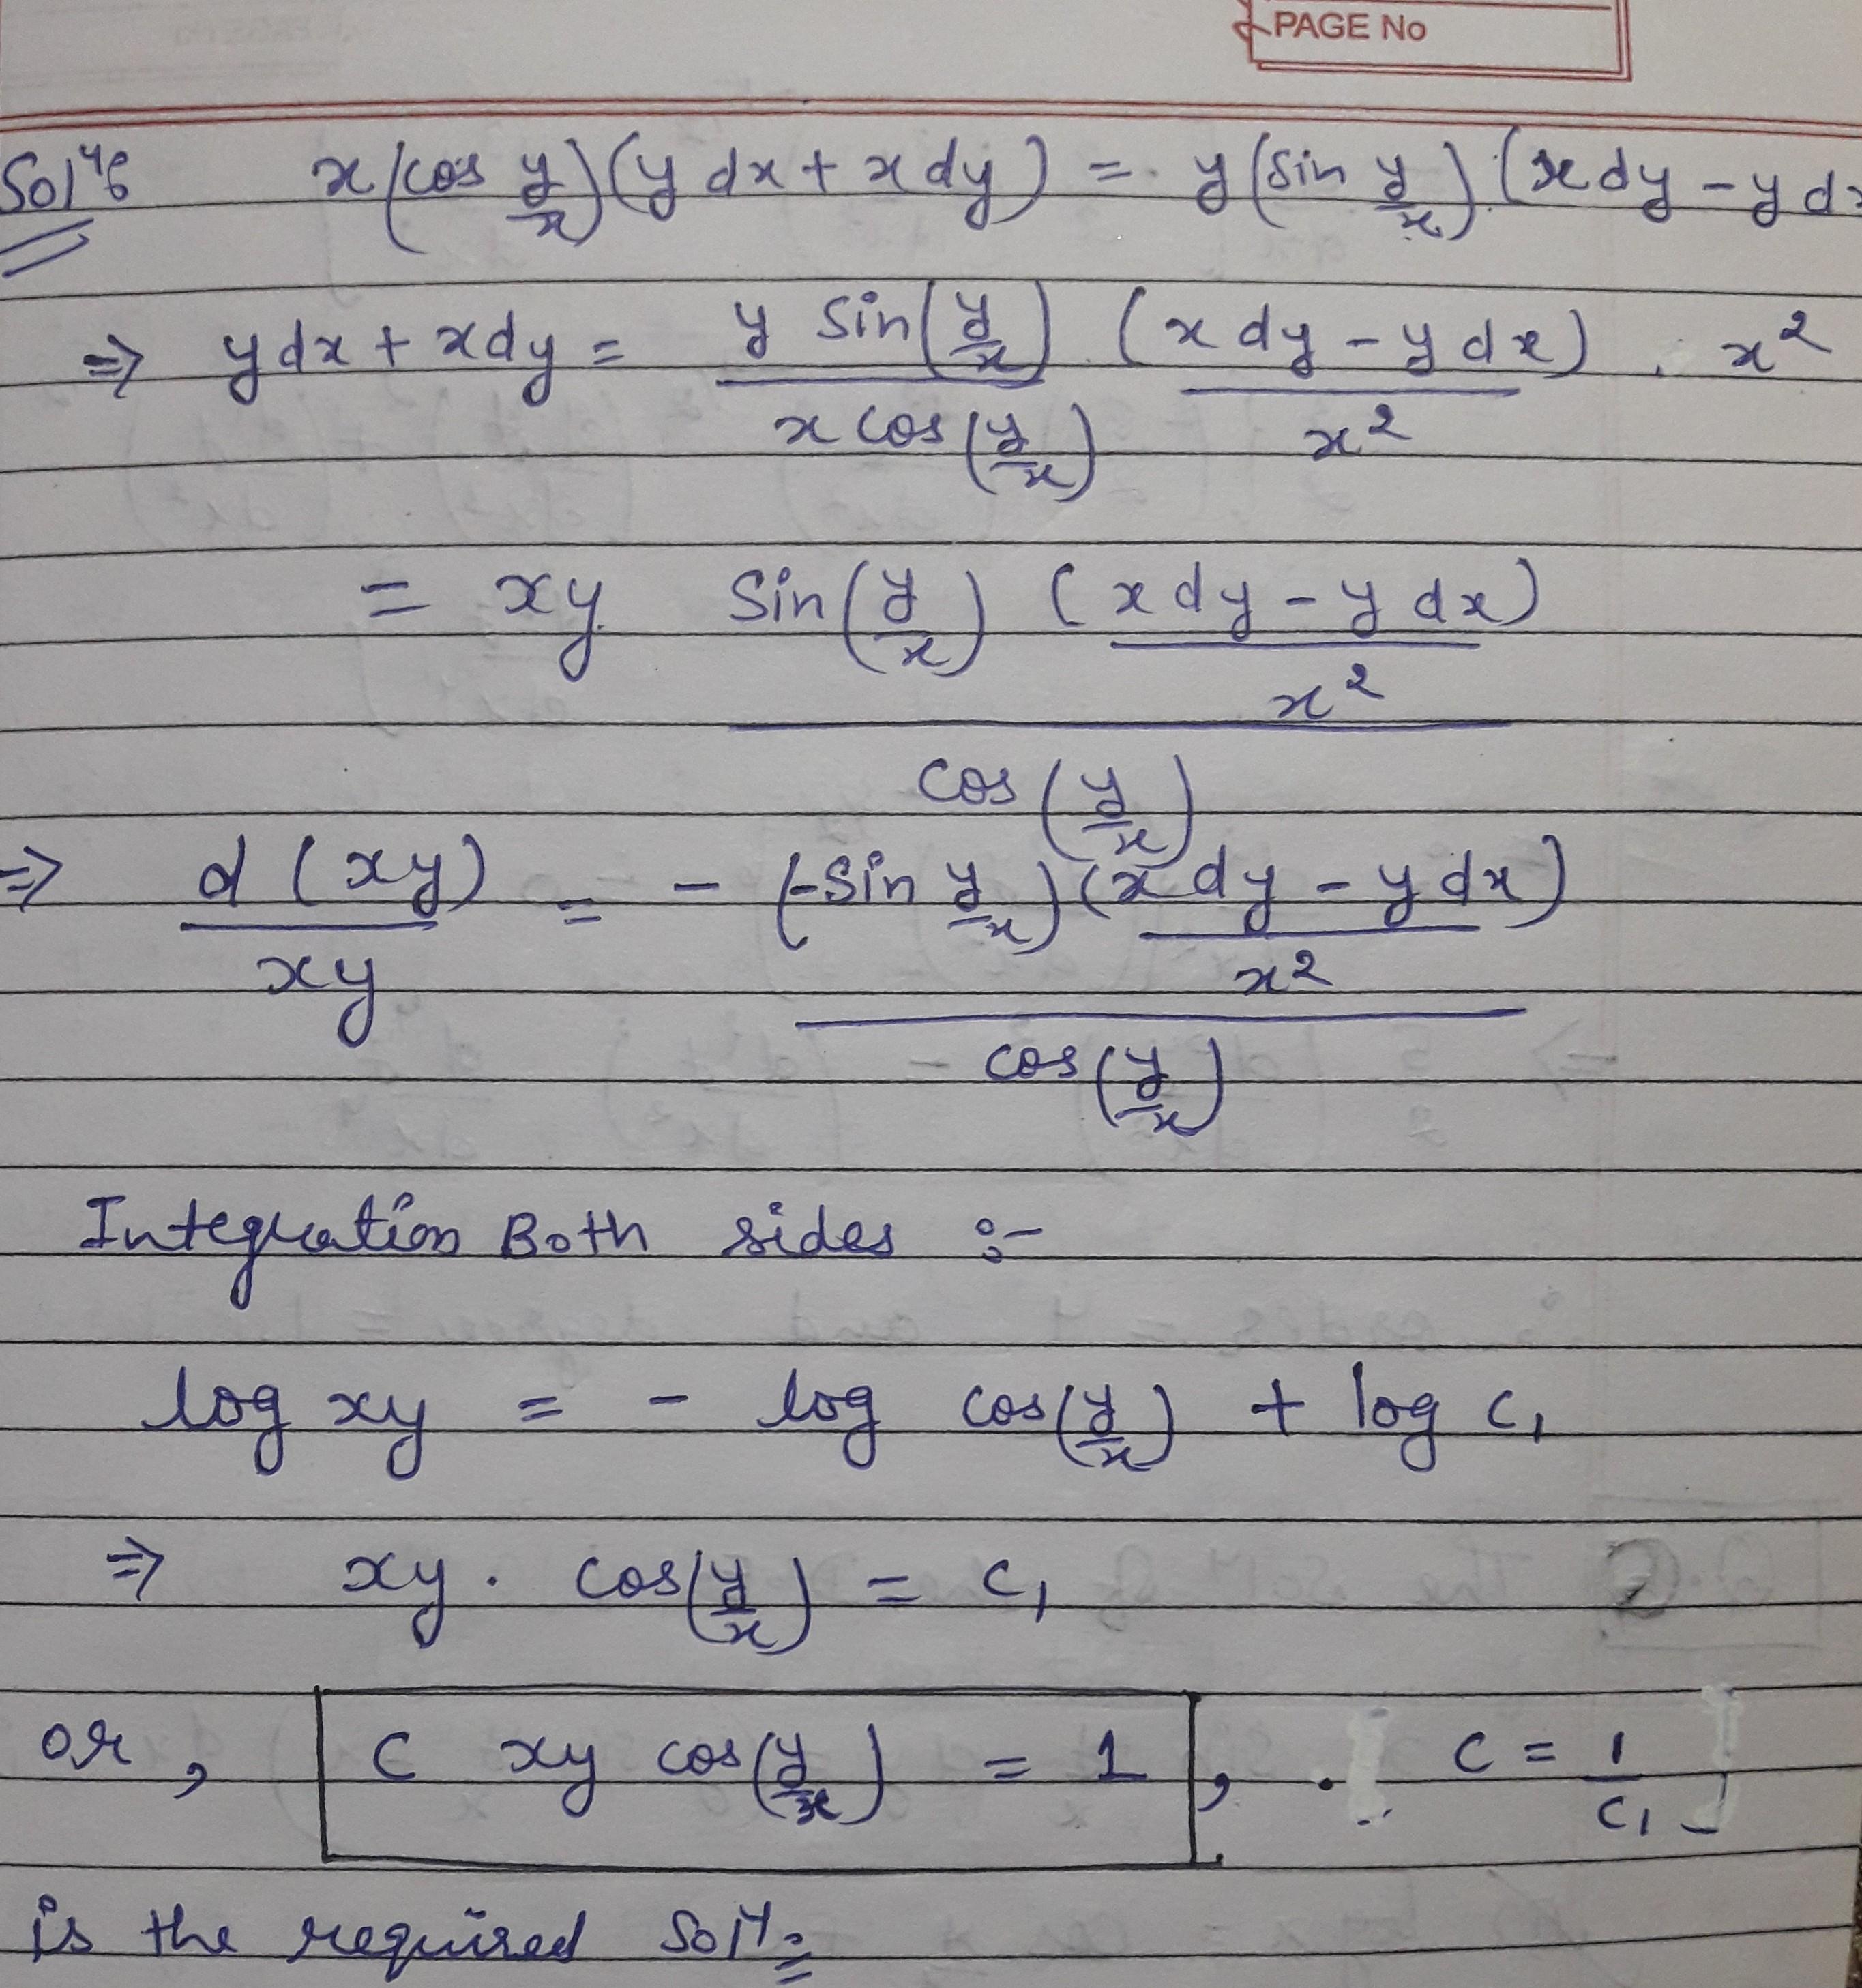 PAGE No
Solⁿ: x(cos y/x)(y dx + x dy) = y(sin y/x)(x dy - y d
⇒ y dx + x dy = y sin(y/x) / x cos(y/x) (x dy - y dx)/x² . x²
= xy sin(y/x) (x dy - y dx)/x² / cos(y/x)
⇒ d(xy)/xy = - (-sin y/x)(x dy - y dx)/x² / cos(y/x)
Integration Both sides :-
log xy = - log cos(y/x) + log c₁
⇒ xy . cos(y/x) = c₁
or, C xy cos(y/x) = 1 , . C = 1/c₁
is the required Solⁿ.